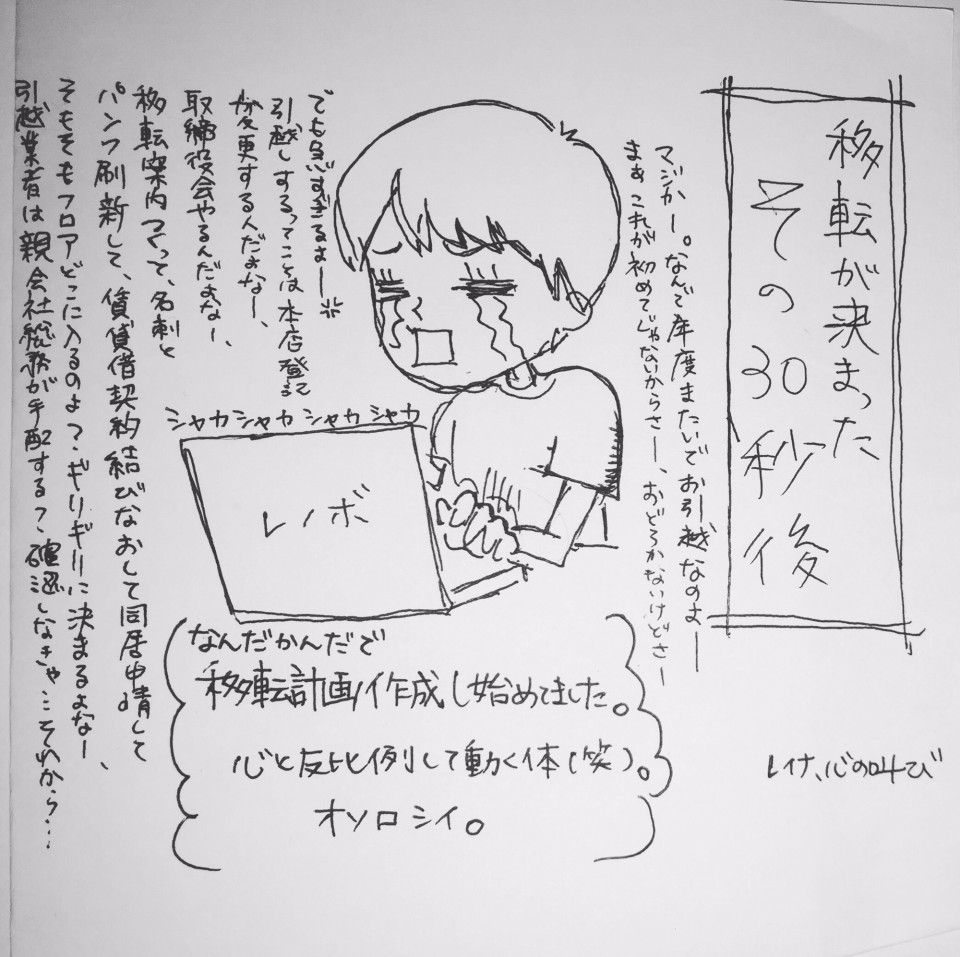 移転が決まった
その30秒後
マジかー。なんで年度またいでお引越なのよー
まぁこれが初めてじゃないからさー、おどろかないけどさー
でも急すぎるよー
引越しするってことは本店登記
が変更するんだよなー、
取締役会やるんだよなー、
移転案内つくって、名刺と
パンフ刷新して、賃貸借契約結びなおして同居申請して
そもそもフロアどこに入るのよ?ギリギリに決まるよなー、
引越業者は親会社総務が手配する?確認しなきゃ…それから…
シャカシャカシャカシャカ
レノボ
なんだかんだで
移転計画作成し始めてました。
心と反比例して動く体(笑)。
オソロシイ。
レイナ、心の叫び